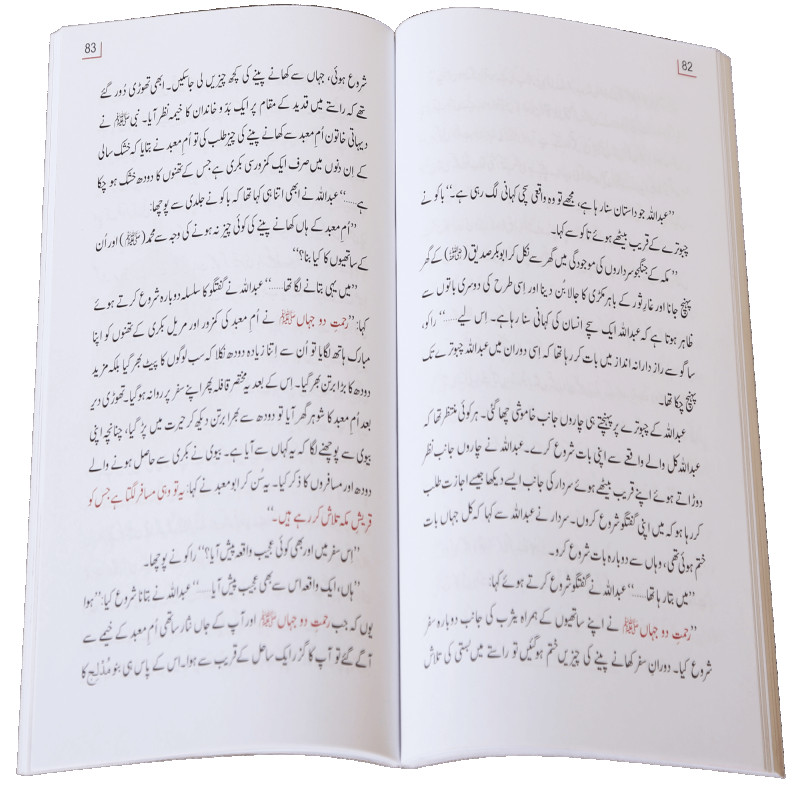 82
”عبداللہ جو داستان سنا رہا ہے، مجھے تو وہ واقعی سچی کہانی لگ رہی ہے۔“ باکو نے
چبوترے کے قریب بیٹھے ہوئے تاکو سے کہا۔
”مکہ کے جنگجو سرداروں کی موجودگی میں گھر سے نکل کر ابوبکر صدیق (ؓ) کے گھر
پہنچ جانا اور غارِ ثور کے باہر مکڑی کا جالا بُن دینا اور اِسی طرح کی دوسری باتوں سے
ظاہر ہوتا ہے کہ عبداللہ ایک سچے انسان کی کہانی سنا رہا ہے۔ اِس لیے.....“ راکو،
ساگو سے راز دارانہ انداز میں بات کر رہا تھا کہ اِسی دوران میں عبداللہ چبوترے تک
پہنچ چکا تھا۔
عبداللہ کے چبوترے پر پہنچتے ہی چاروں جانب خاموشی چھا گئی۔ ہر کوئی منتظر تھا کہ
عبداللہ کل والے واقعے سے اپنی بات شروع کرے۔ عبداللہ نے چاروں جانب نظر
دوڑاتے ہوئے اپنے قریب بیٹھے ہوئے سردار کی جانب ایسے دیکھا جیسے اجازت طلب
کر رہا ہو کہ میں اپنی گفتگو شروع کروں۔ سردار نے عبداللہ سے کہا کہ کل جہاں بات
ختم ہوئی تھی، وہاں سے دوبارہ بات شروع کرو۔
”میں بتا رہا تھا.....“ عبداللہ نے گفتگو شروع کرتے ہوئے کہا:
”رحمتِ دو جہاں ﷺ نے اپنے ساتھیوں کے ہمراہ یثرب کی جانب دوبارہ سفر
شروع کیا۔ دورانِ سفر کھانے پینے کی چیزیں ختم ہو گئیں تو راستے میں بستی کی تلاش
83
شروع ہوئی، جہاں سے کھانے پینے کی کچھ چیزیں لی جا سکیں۔ ابھی تھوڑی دُور گئے
تھے کہ راستے میں قدید کے مقام پر ایک بدو خاندان کا خیمہ نظر آیا۔ نبی ﷺ نے
دیہاتی خاتون اُم معبد سے کھانے پینے کی چیز طلب کی تو اُم معبد نے بتایا کہ خشک سالی
کے اِن دنوں میں صرف ایک کمزور سی بکری ہے جس کے تھنوں کا دودھ خشک ہو چکا
ہے.....“ عبداللہ نے ابھی اتنا ہی کہا تھا کہ باکو نے جلدی سے پوچھا:
”اُمِ معبد کے ہاں کھانے پینے کی کوئی چیز نہ ہونے کی وجہ سے محمد (ﷺ) اور اُن
کے ساتھیوں کا کیا بنا؟“
”میں یہی بتانے لگا تھا.....“ عبداللہ نے گفتگو کا سلسلہ دوبارہ شروع کرتے ہوئے
کہا: ”رحمتِ دو جہاں ﷺ نے اُم معبد کی کمزور اور مریل بکری کے تھنوں کو اپنا
مبارک ہاتھ لگایا تو اُن سے اتنا زیادہ دودھ نکلا کہ سب لوگوں کا پیٹ بھر گیا بلکہ مزید
دودھ کا بڑا برتن بھر گیا۔ اِس کے بعد یہ مختصر قافلہ پھر اپنے سفر پر روانہ ہو گیا۔ تھوڑی دیر
بعد اُم معبد کا شوہر گھر آیا تو دودھ سے بھرا برتن دیکھ کر حیرت میں پڑ گیا، چنانچہ اپنی
بیوی سے پوچھنے لگا کہ یہ کہاں سے آیا ہے۔ بیوی نے بکری سے حاصل ہونے والے
دودھ اور مسافروں کا ذکر کیا۔ یہ سُن کر ابو معبد نے کہا: یہ تو وہی مسافر لگتا ہے جس کو
قریشِ مکہ تلاش کر رہے ہیں۔“
”اِس سفر میں اور بھی کوئی عجیب واقعہ پیش آیا؟“ راکو نے پوچھا۔
”ہاں، ایک واقعہ اس سے بھی عجیب پیش آیا.....“ عبداللہ نے بتانا شروع کیا: ”ہوا
یوں کہ جب رحمتِ دو جہاں ﷺ اور آپ کے جاں نثار ساتھی اُم معبد کے خیمے سے
آگے گئے تو آپ کا گزر ایک ساحل کے قریب سے ہوا۔ اس کے پاس ہی بنو مُدلج کا